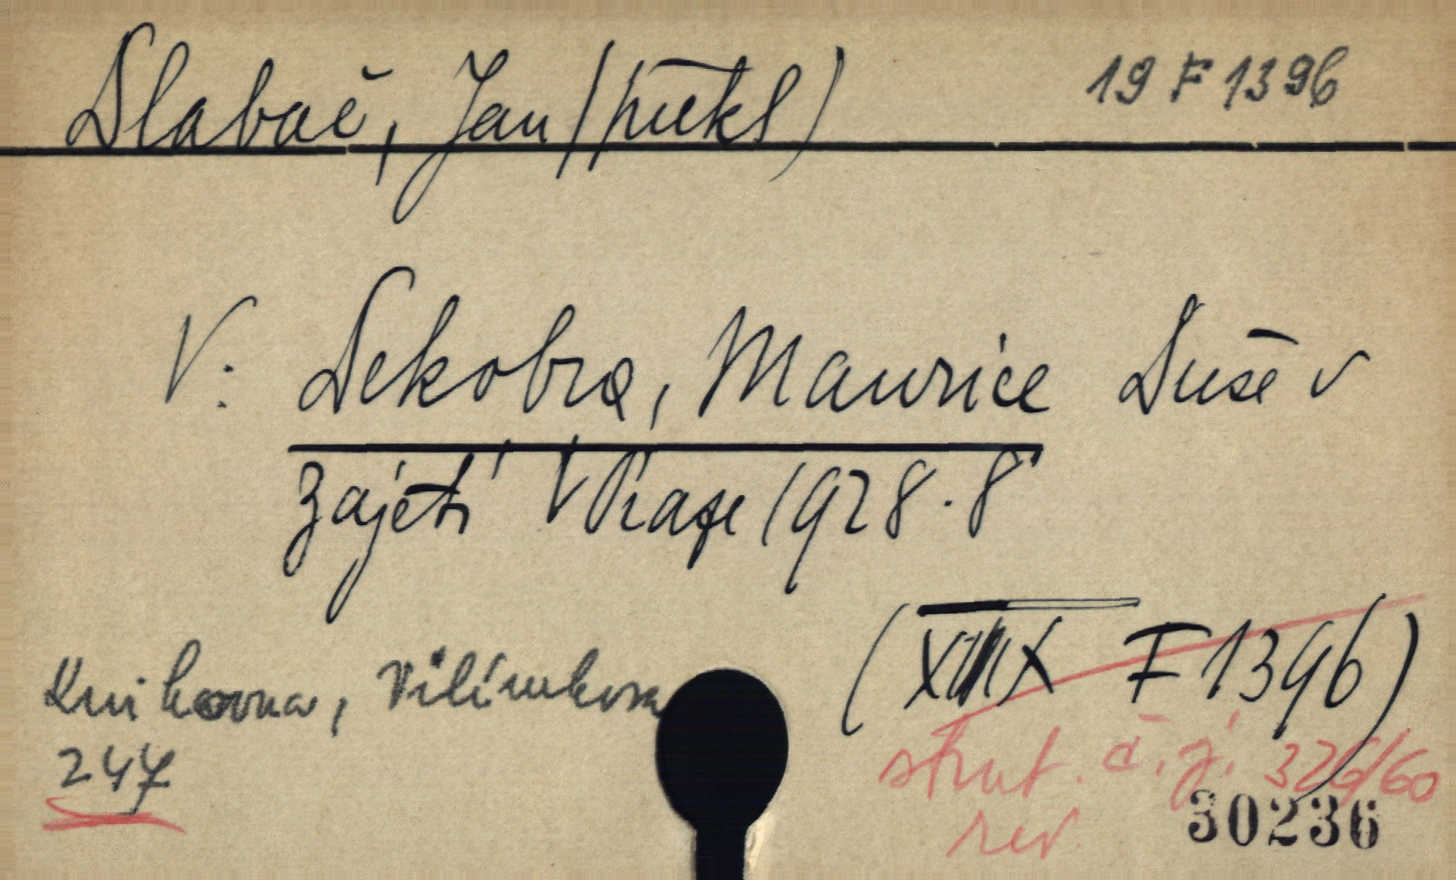 Dlabač, Jan (překl) 19 F 1396
V: Dekobra, Maurice Duše v
zajetí V Praze 1928. 8°
(XIX F 1396)
Knihovna, Vilímkova
247
škrt. č. j. 326/60
rev.
30236